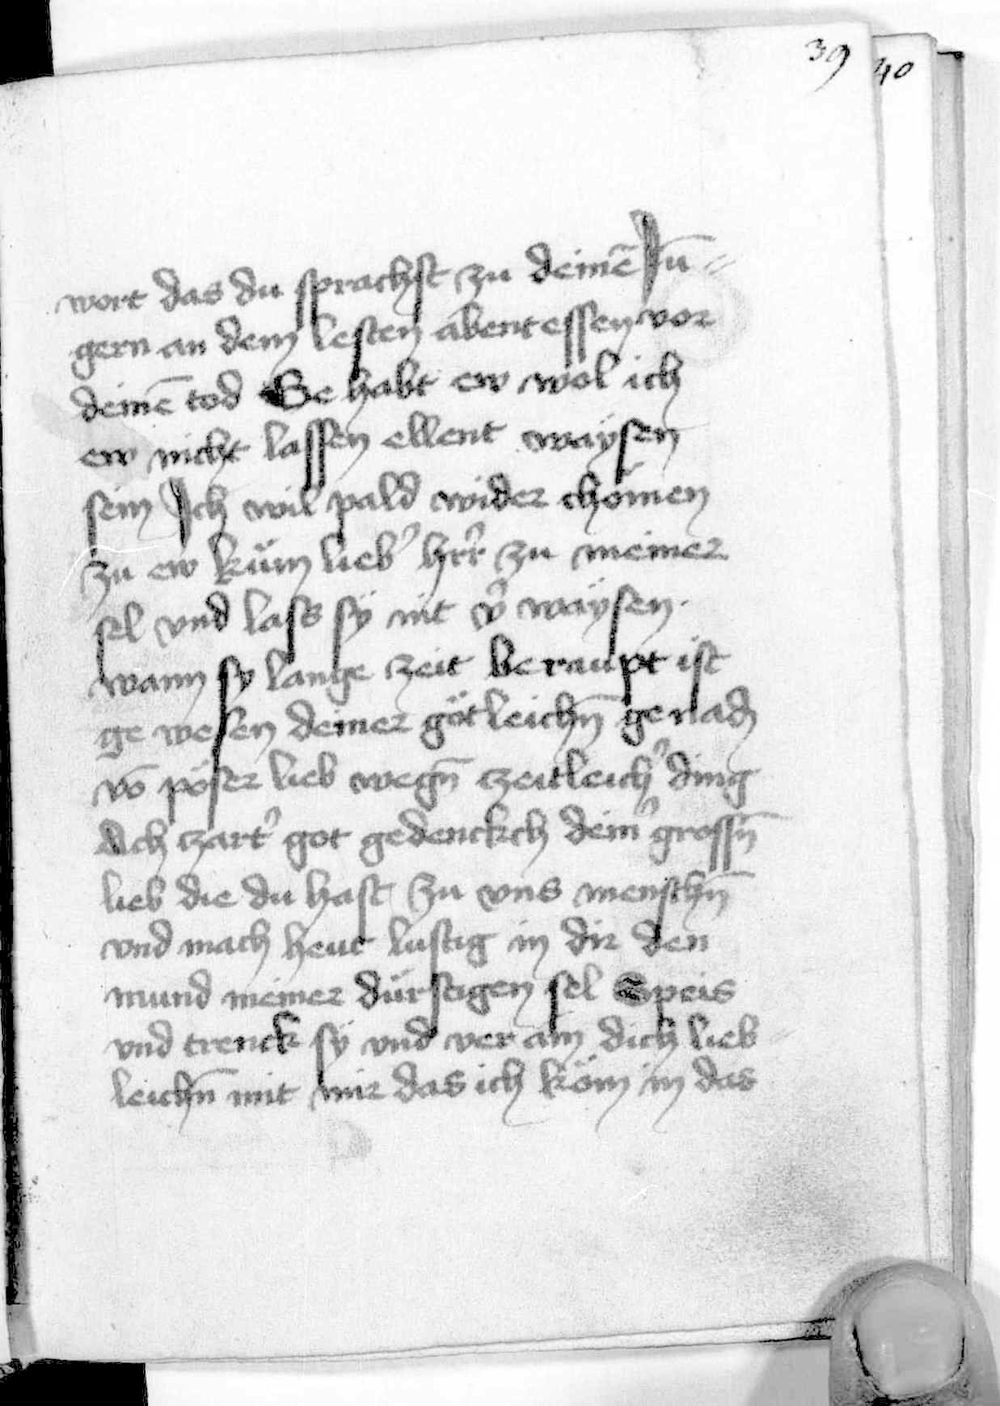 39 40
wort das du sprachst zu deinē Jū⸗
gern an dem lesten abent essen vor
deinē tod Ge habt ew wol ich
ew nicht lassen ellent waÿsen
sein Ich wil pald wider chömen
zu ew küm lieb' hr'r zu meiner
sel vnd lass sÿ nit v' waÿsen.
wann sy lange zeit be raupt ist
ge wesen deiner götleichn̄ genad
vō pöser lieb wegn̄ zeitleich' ding
Ach zart' got gedenckch dein' grossn̄
lieb die du hast zu vns menschn̄
vnd mach heut lustig in dir den
mund meiner dürstigen sel Speis
vnd trenck sÿ vnd ver ain dich lieb⸗
leichn̄ mit mir das ich köm in das